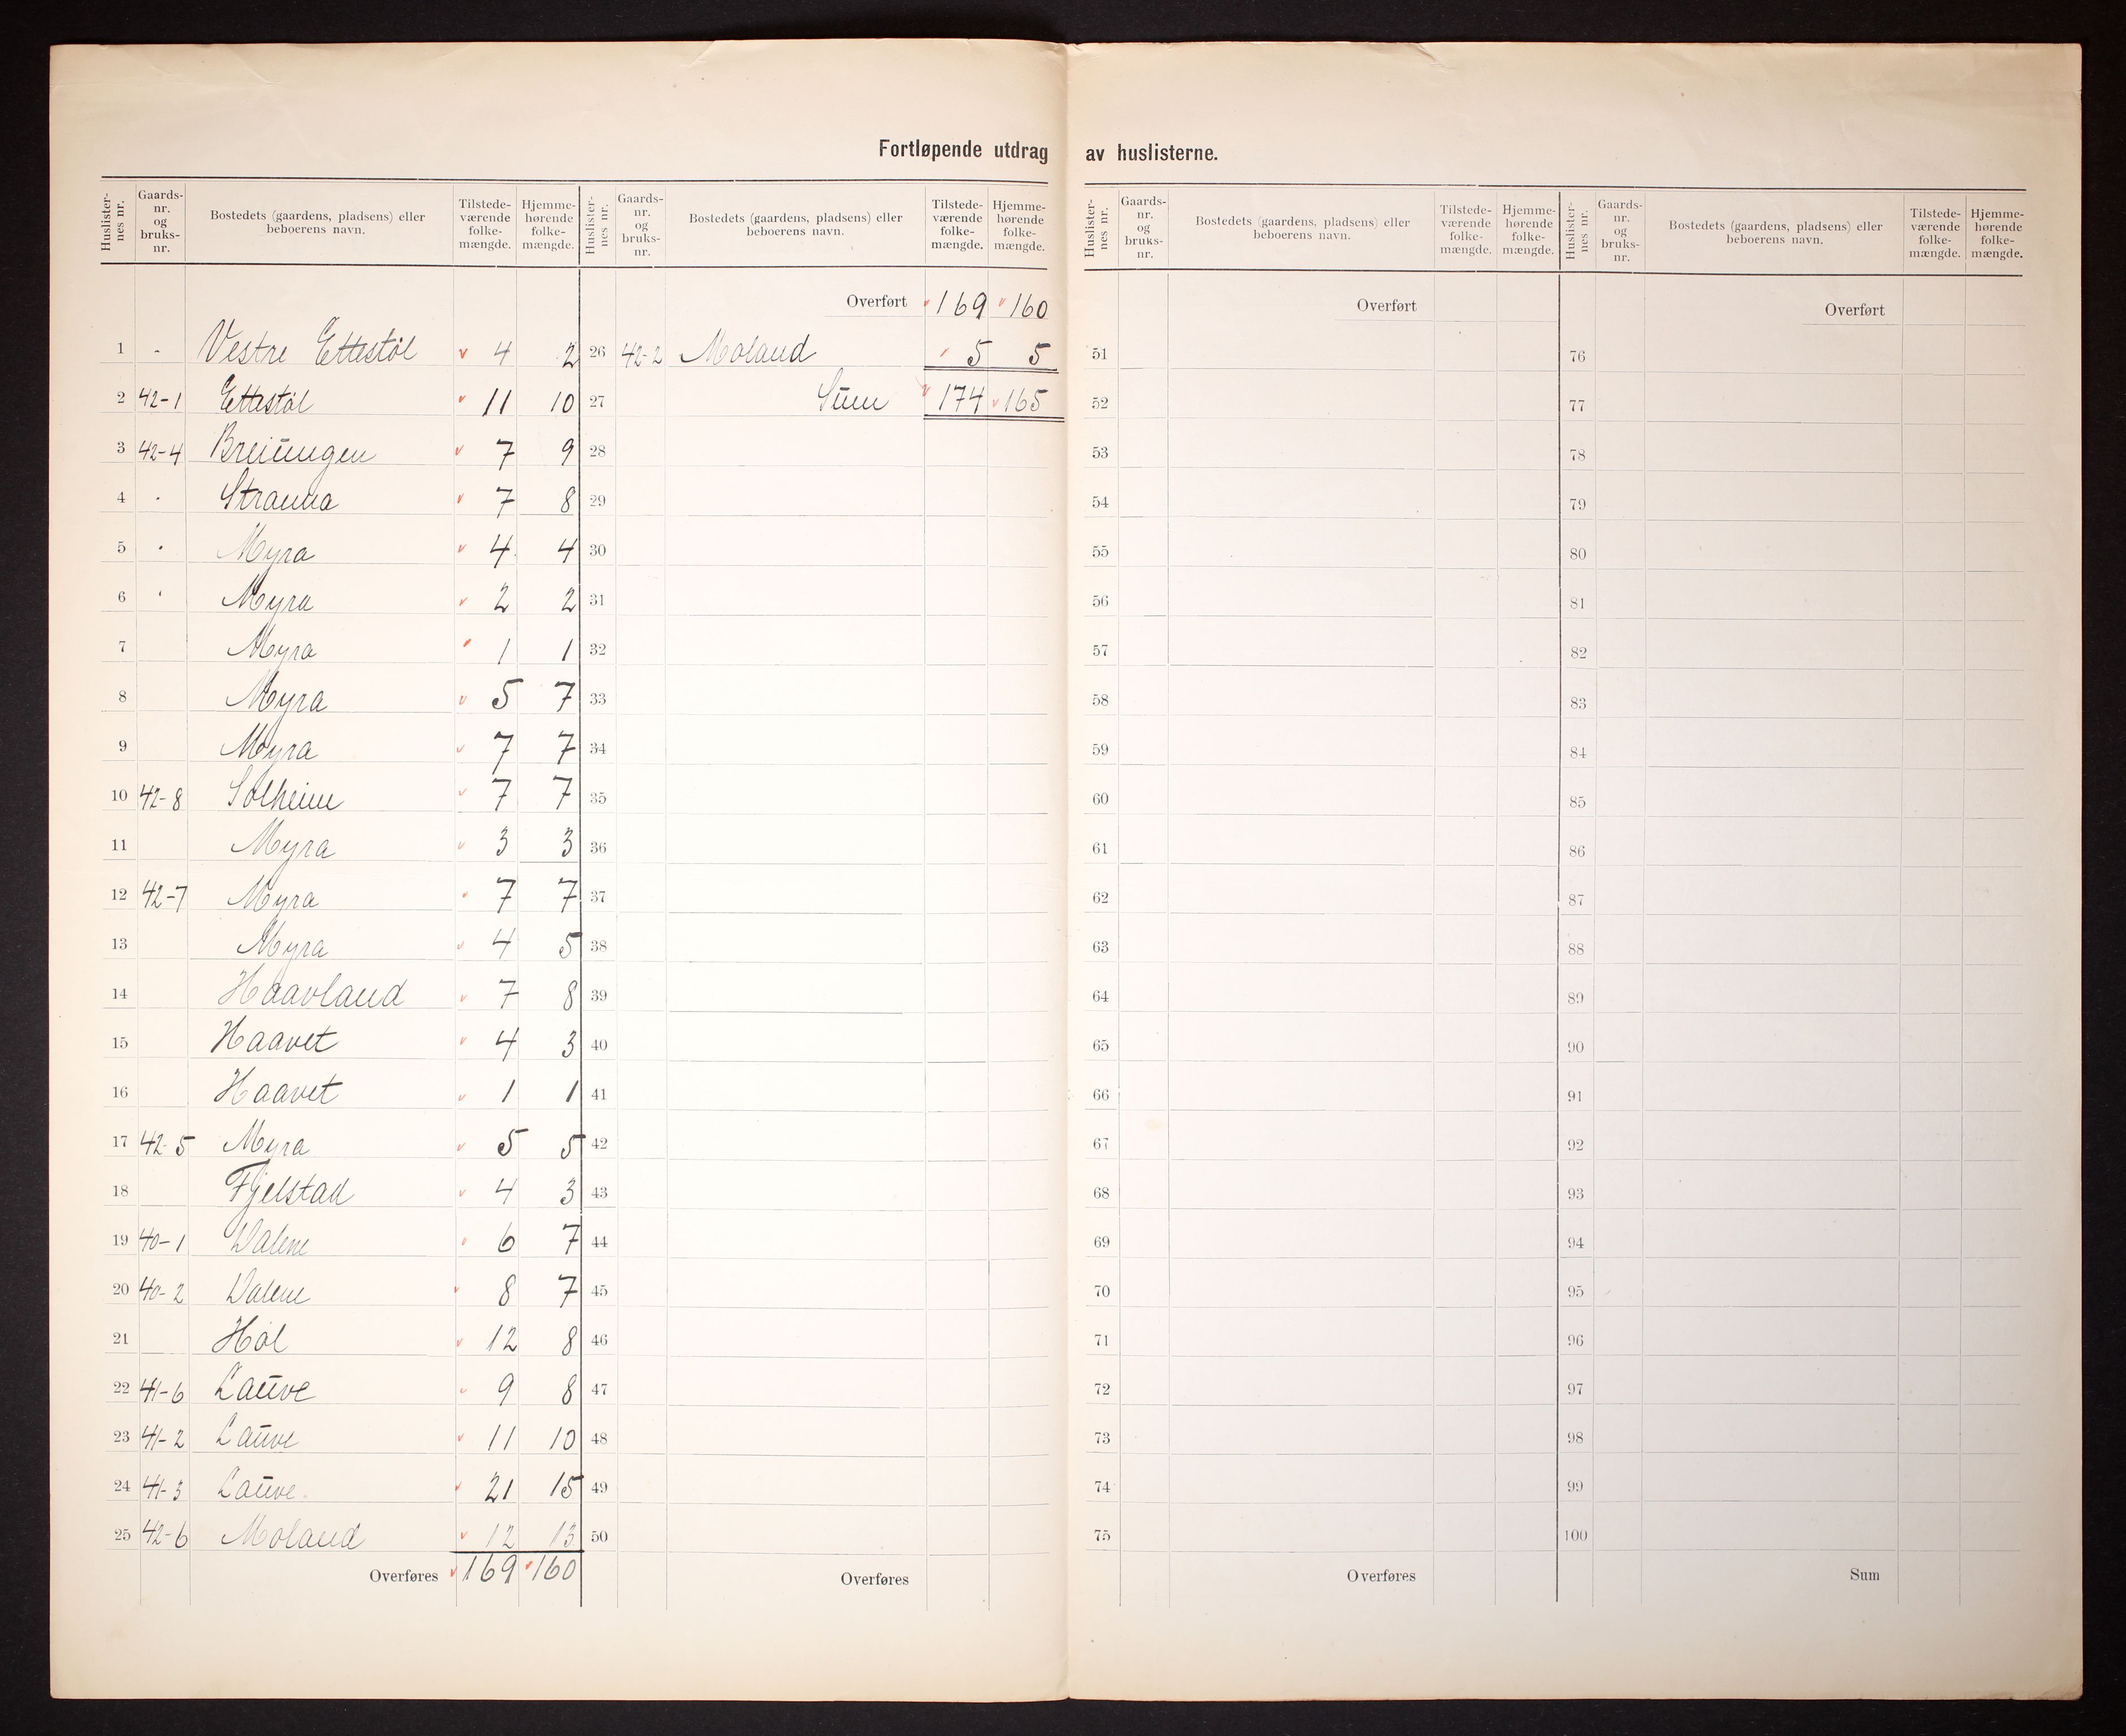 Fortløpende utdrag av huslisterne.
Huslister-nes nr. Gaards-nr. og bruks-nr. Bostedets (gaardens, pladsens) eller beboerens navn. Tilstede-værende folke-mængde. Hjemme-hørende folke-mængde.
1 - Vestre Ettestöl 4 2
2 42-1 Ettestöl 11 10
3 42-4 Breiungen 7 9
4 " Stranna 7 8
5 " Myra 4 4
6 " Myra 2 2
7 Myra 1 1
8 Myra 5 7
9 Myra 7 7
10 42-8 Solheim 7 7
11 Myra 3 3
12 42-7 Myra 7 7
13 Myra 4 5
14 Haavland 7 8
15 Haavet 4 3
16 Haavet 1 1
17 42-5 Myra 5 5
18 Fjelstad 4 3
19 40-1 Dalene 6 7
20 40-2 Dalene 8 7
21 Hol 12 8
22 41-6 Lauve 9 8
23 41-2 Lauve 11 10
24 41-3 Lauve 21 15
25 42-6 Moland 12 13
Overføres 169 160
Huslister-nes nr. Gaards-nr. og bruks-nr. Bostedets (gaardens, pladsens) eller beboerens navn. Tilstede-værende folke-mængde. Hjemme-hørende folke-mængde.
Overført 169 160
26 42-2 Moland 5 5
27 Sum 174 165
28
29
30
31
32
33
34
35
36
37
38
39
40
41
42
43
44
45
46
47
48
49
50
Overføres
Huslister-nes nr. Gaards-nr. og bruks-nr. Bostedets (gaardens, pladsens) eller beboerens navn. Tilstede-værende folke-mængde. Hjemme-hørende folke-mængde.
Overført
51
52
53
54
55
56
57
58
59
60
61
62
63
64
65
66
67
68
69
70
71
72
73
74
75
Overføres
Huslister-nes nr. Gaards-nr. og bruks-nr. Bostedets (gaardens, pladsens) eller beboerens navn. Tilstede-værende folke-mængde. Hjemme-hørende folke-mængde.
Overført
76
77
78
79
80
81
82
83
84
85
86
87
88
89
90
91
92
93
94
95
96
97
98
99
100
Sum